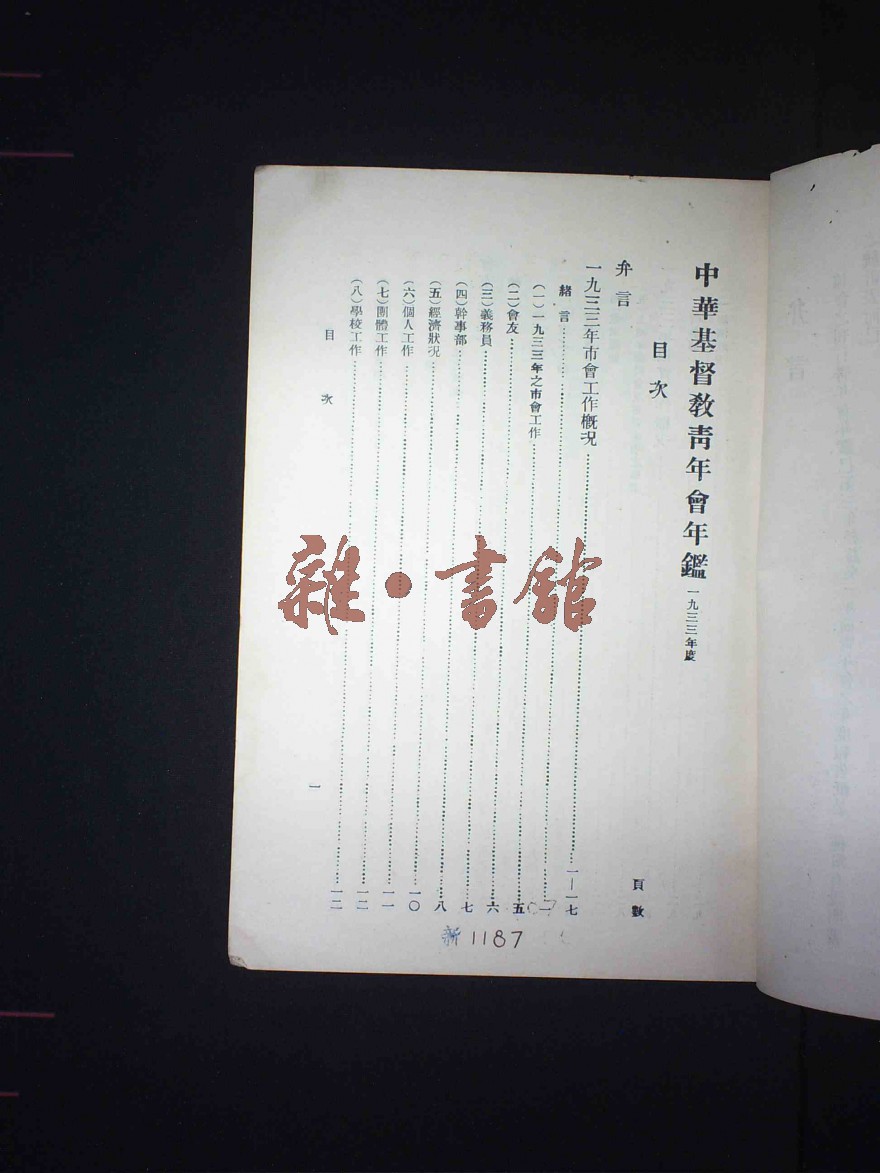 中華基督教靑年會年鑑 一九三三年度
目次
頁數
弁言
一九三三年市會工作概況……一—一七
緒言……一
(一)一九三三年之市會工作……五
(二)會友……六
(三)義務員……七
(四)幹事部……八
(五)經濟狀况……一〇
(六)個人工作……一一
(七)團體工作……一二
(八)學校工作……一二
目次
一
雜·書館
新 1187